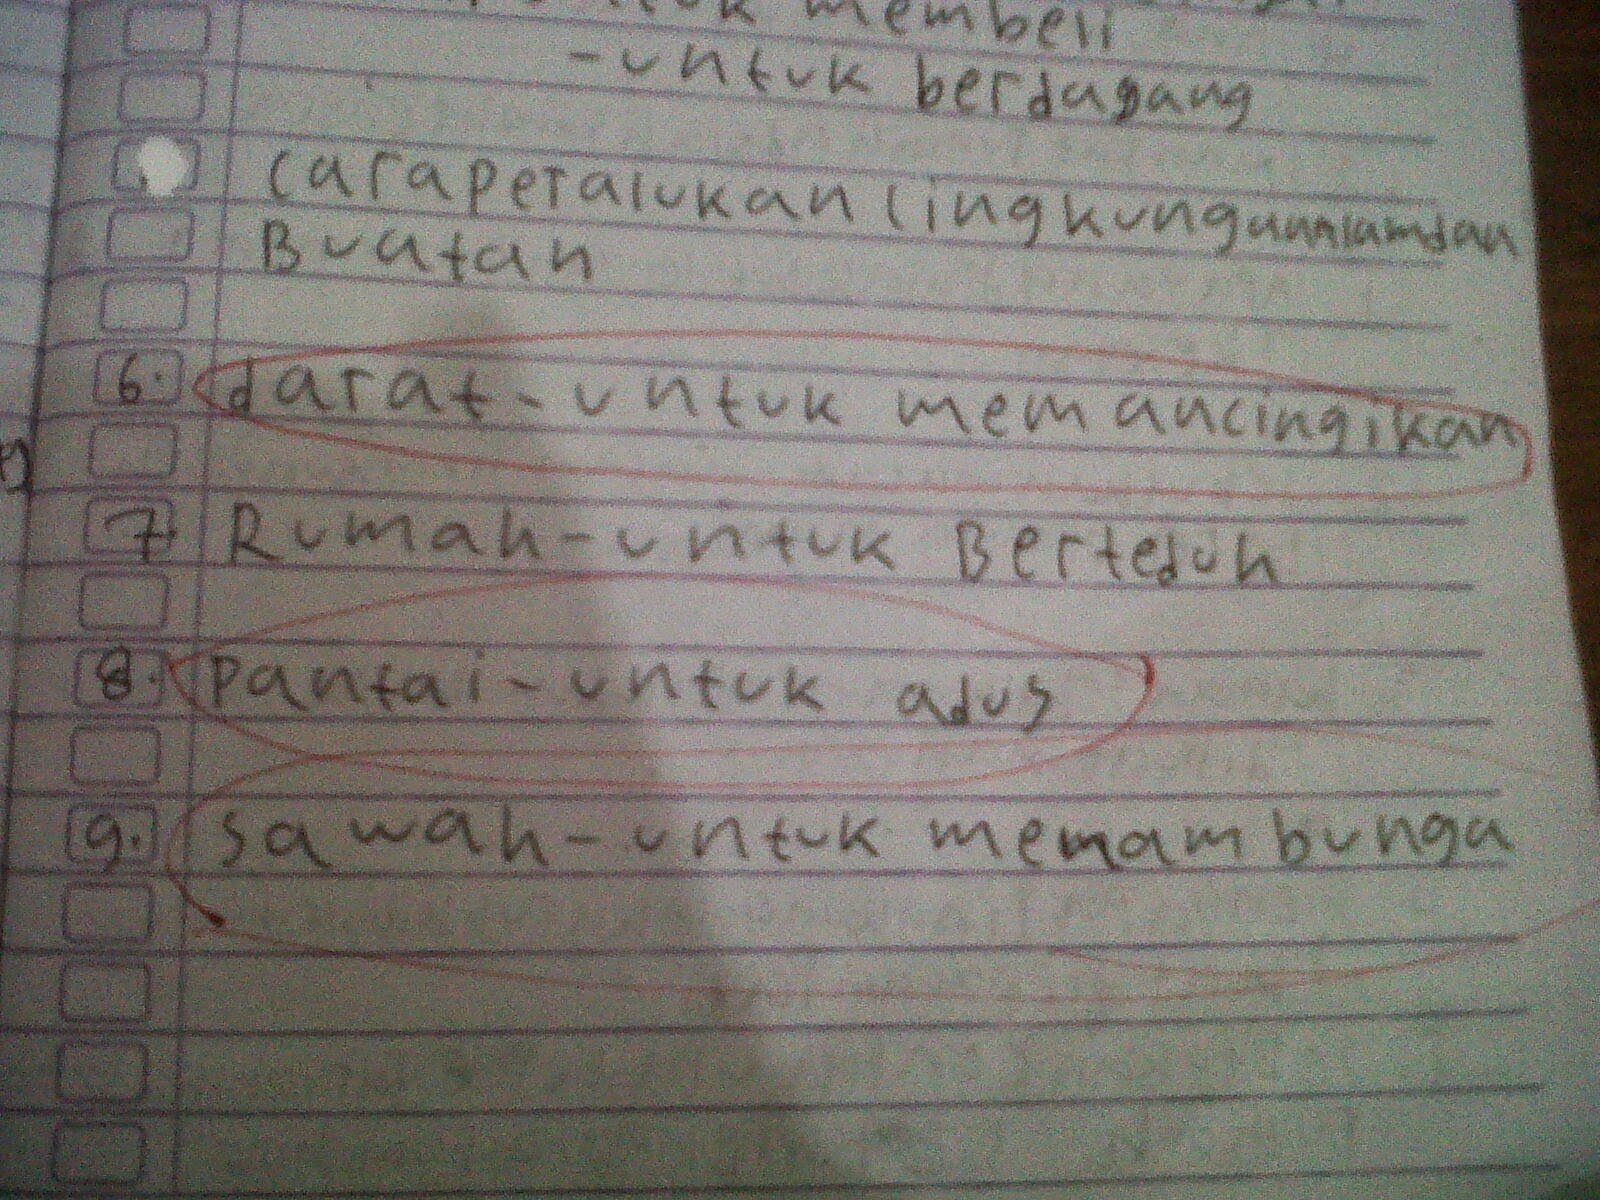 untuk membeli
- untuk berdagang
carapetalukan lingkunganalamdan
Buatan
6. darat - untuk memancingikan
7. Rumah - untuk Berteduh
8. pantai - untuk adus
9. sawah - untuk memambunga